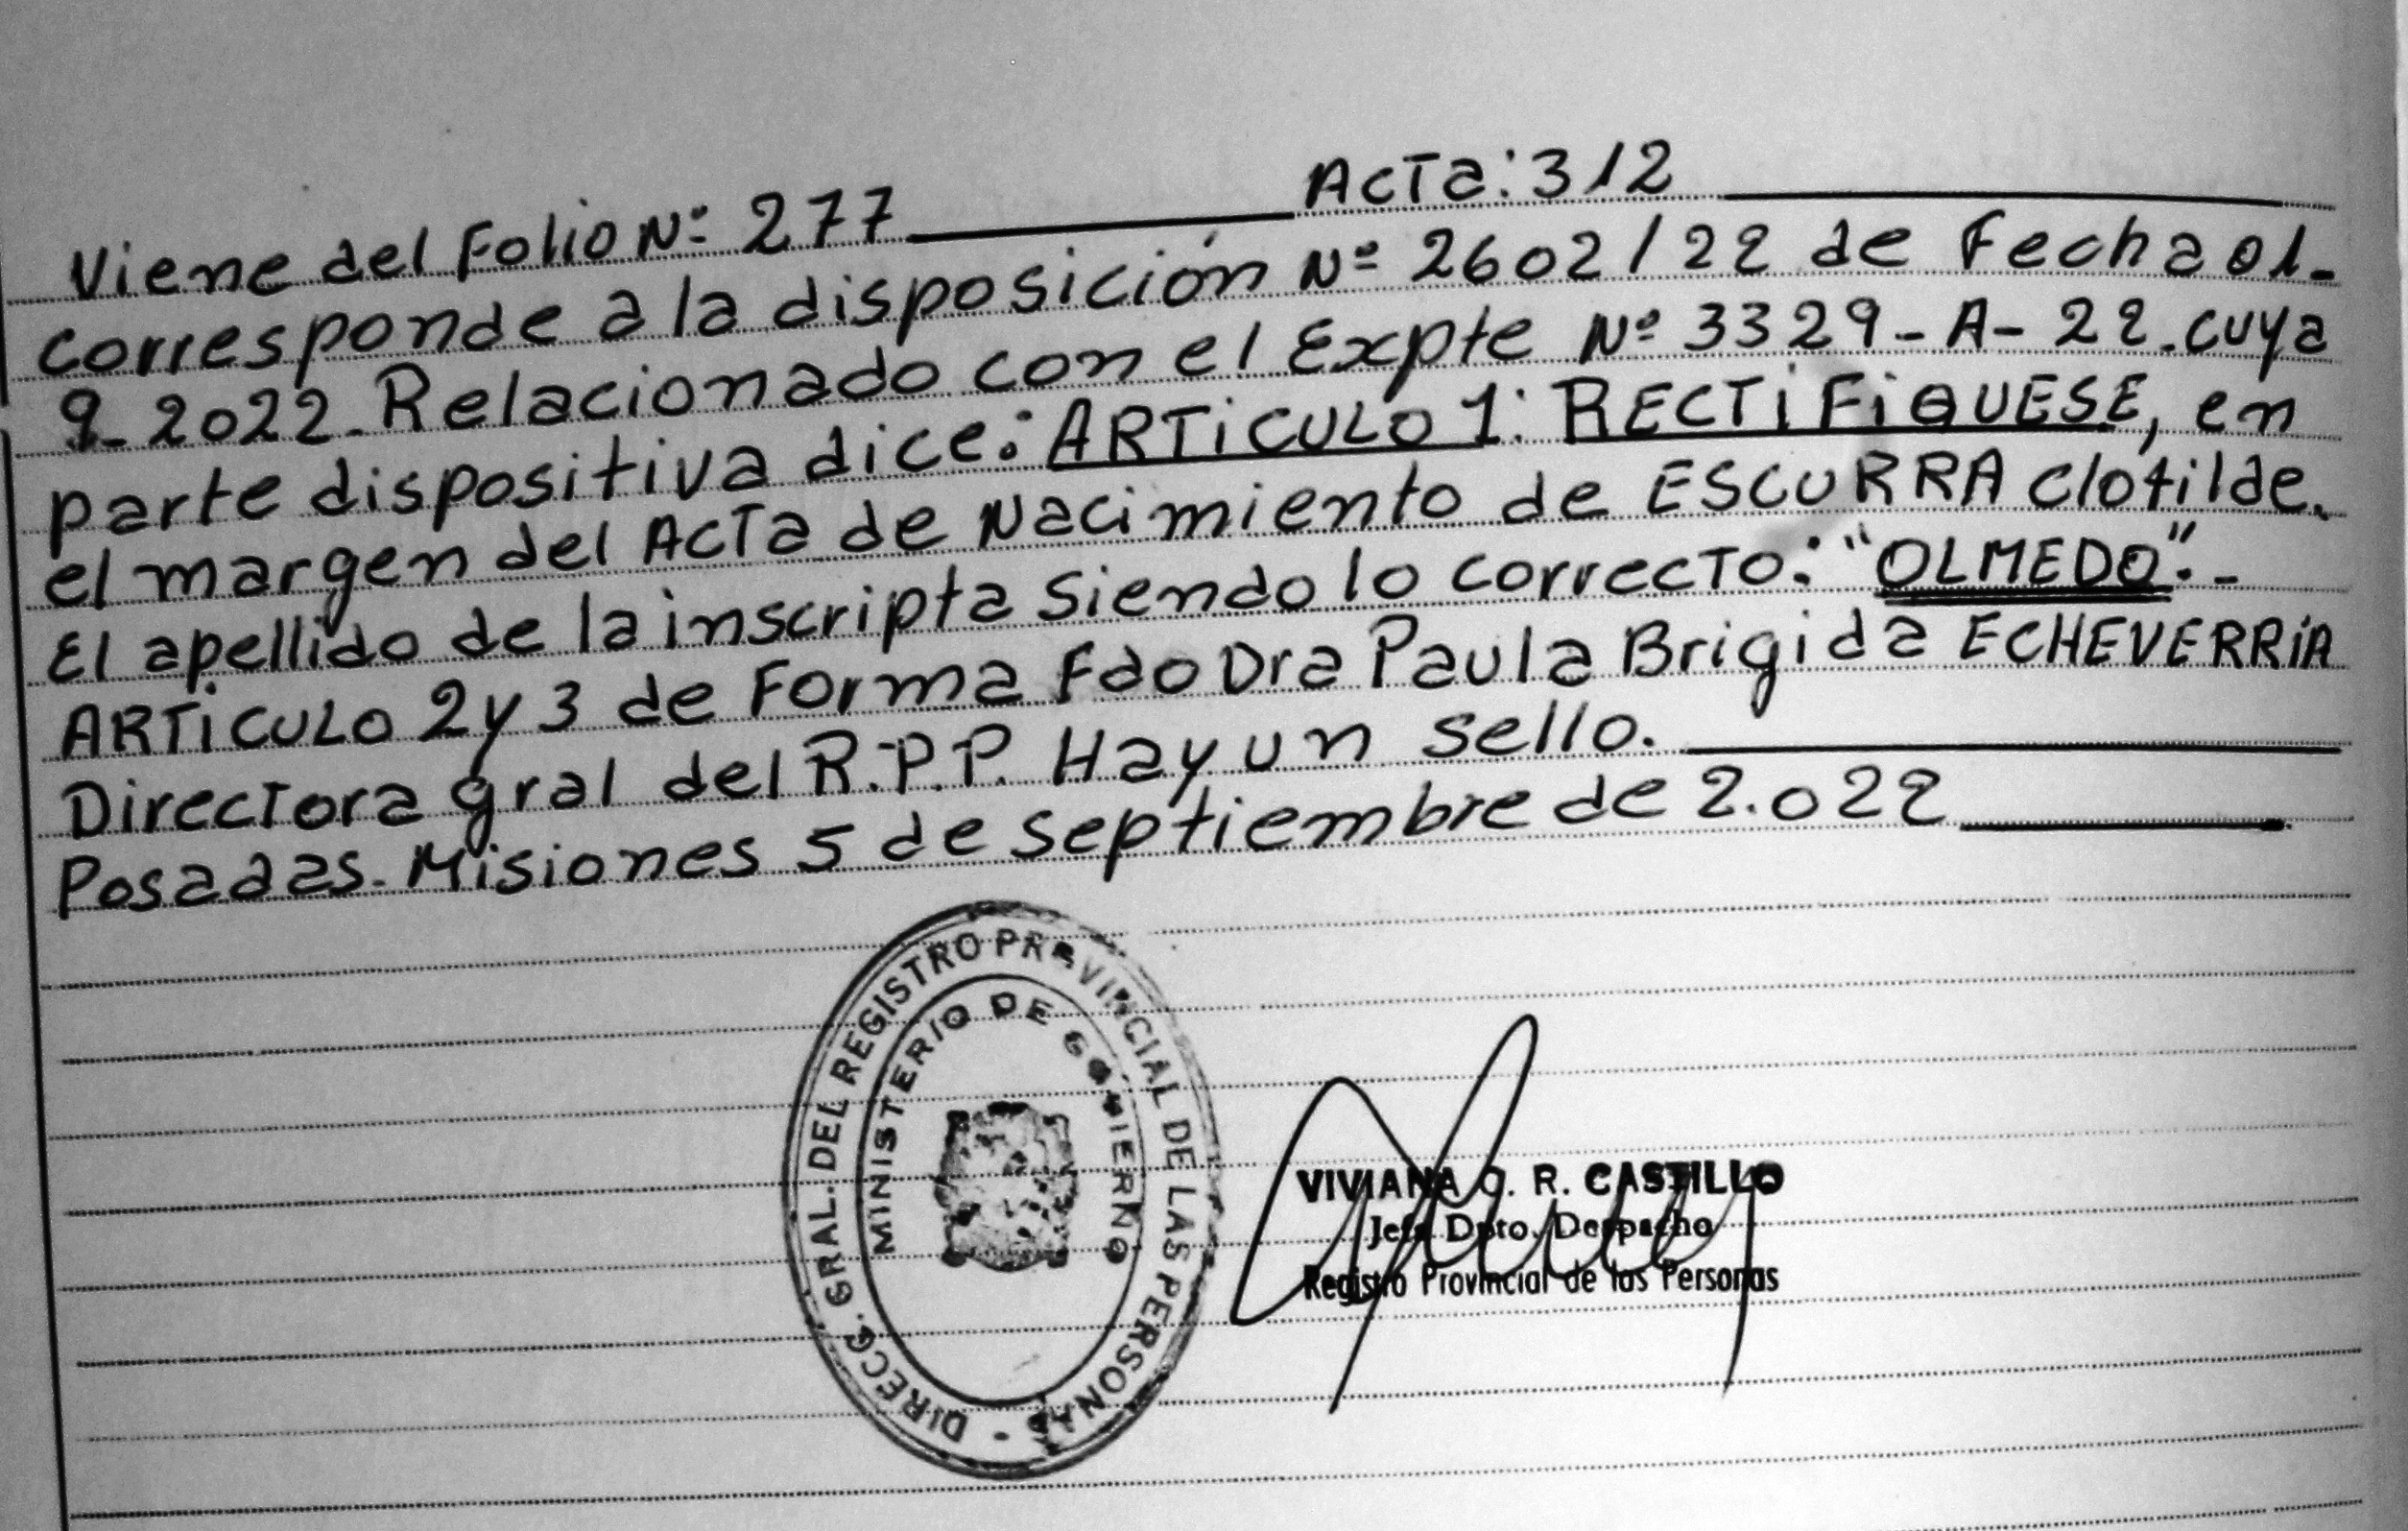 Viene del Folio Nº 277 Acta: 312
corresponde a la disposición Nº 2602/22 de Fecha 01-
9-2022-Relacionado con el Expte Nº 3329-A-22.cuya
parte dispositiva dice: ARTiCULO 1: RECTiFiQUESE, en
el margen del Acta de Nacimiento de ESCURRA Clotilde.
El apellido de la inscripta siendo lo correcto: "OLMEDO".-
ARTiCULO 2 y 3 de Forma Fdo Dra Paula Brigida ECHEVERRíA
Directora gral del R.P.P. Hay un sello.
Posadas. Misiones 5 de septiembre de 2.022
DIRECC. GRAL. DEL REGISTRO PROVINCIAL DE LAS PERSONAS -
MINISTERIO DE GOBIERNO
VIVIANA R. CASTILLO
Jefa Dpto. Despacho
Registro Provincial de las Personas